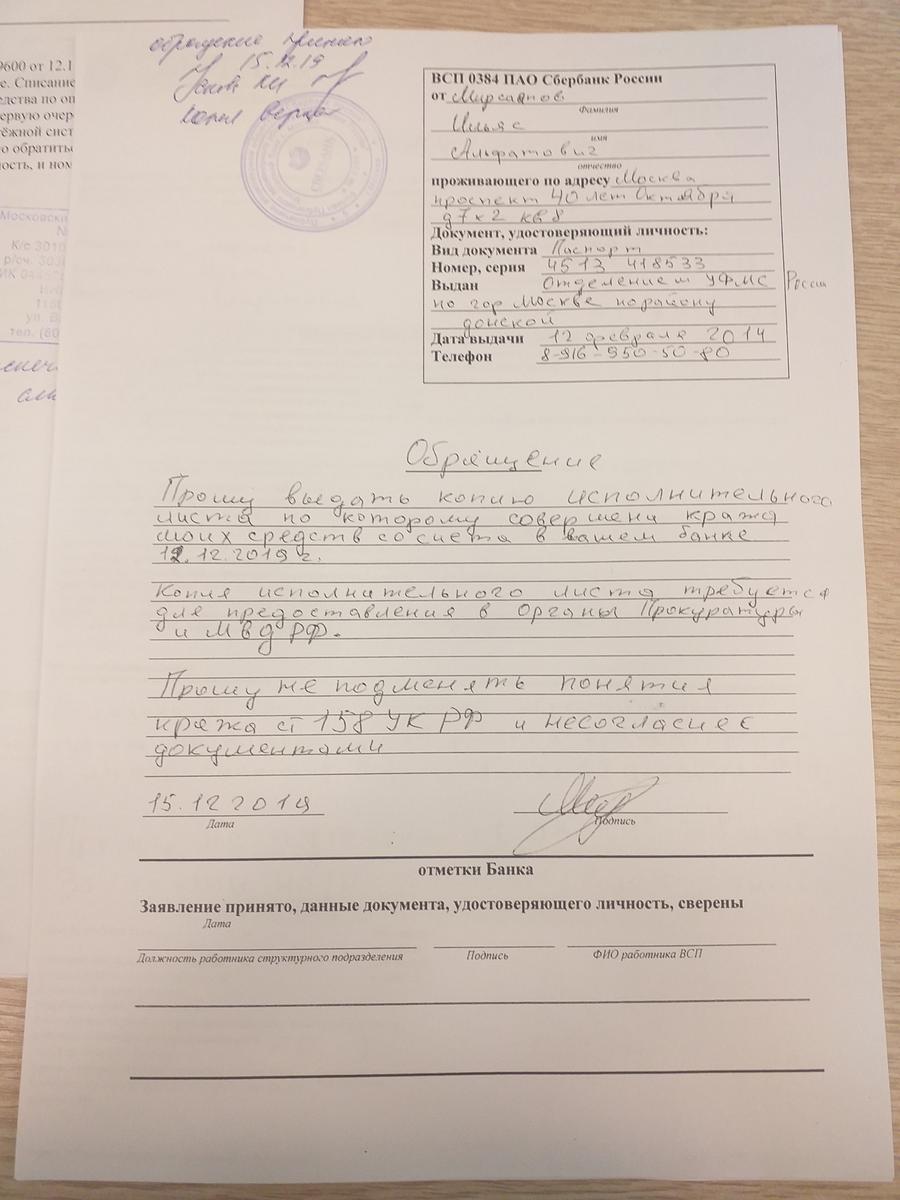 9600 от 12.1
е. Списание
едства по оп
ервую очер
тёжной сист
о обратитьс
ность, и ном
Московски
К/с 3010
р/сч. 303
тел. (80
обращение принято
15.12.19
копия верна
ВСП 0384 ПАО Сбербанк России
от Мирсаяпов
Фамилия
Ильяс
имя
Альфатович
отчество
проживающего по адресу Москва
проспект 40 лет Октября
д 7 к 2 кв 8
Документ, удостоверяющий личность:
Вид документа Паспорт
Номер, серия 4513 418533
Выдан Отделением УФМС России
по гор Москве по району
донской
Дата выдачи 12 февраля 2014
Телефон 8-916-950-50-80
Обращение
Прошу выдать копию исполнительного
листа по которому совершена кража
моих средств со счета в вашем банке
12.12.2019 г.
Копия исполнительного листа требуется
для предоставления в Органы Прокуратуры
и МВД РФ.
Прошу не подменять понятия
кража ст 158 УК РФ и несогласие с
документами
15.12 2019
Дата
Подпись
отметки Банка
Заявление принято, данные документа, удостоверяющего личность, сверены
Дата
Должность работника структурного подразделения Подпись ФИО работника ВСП